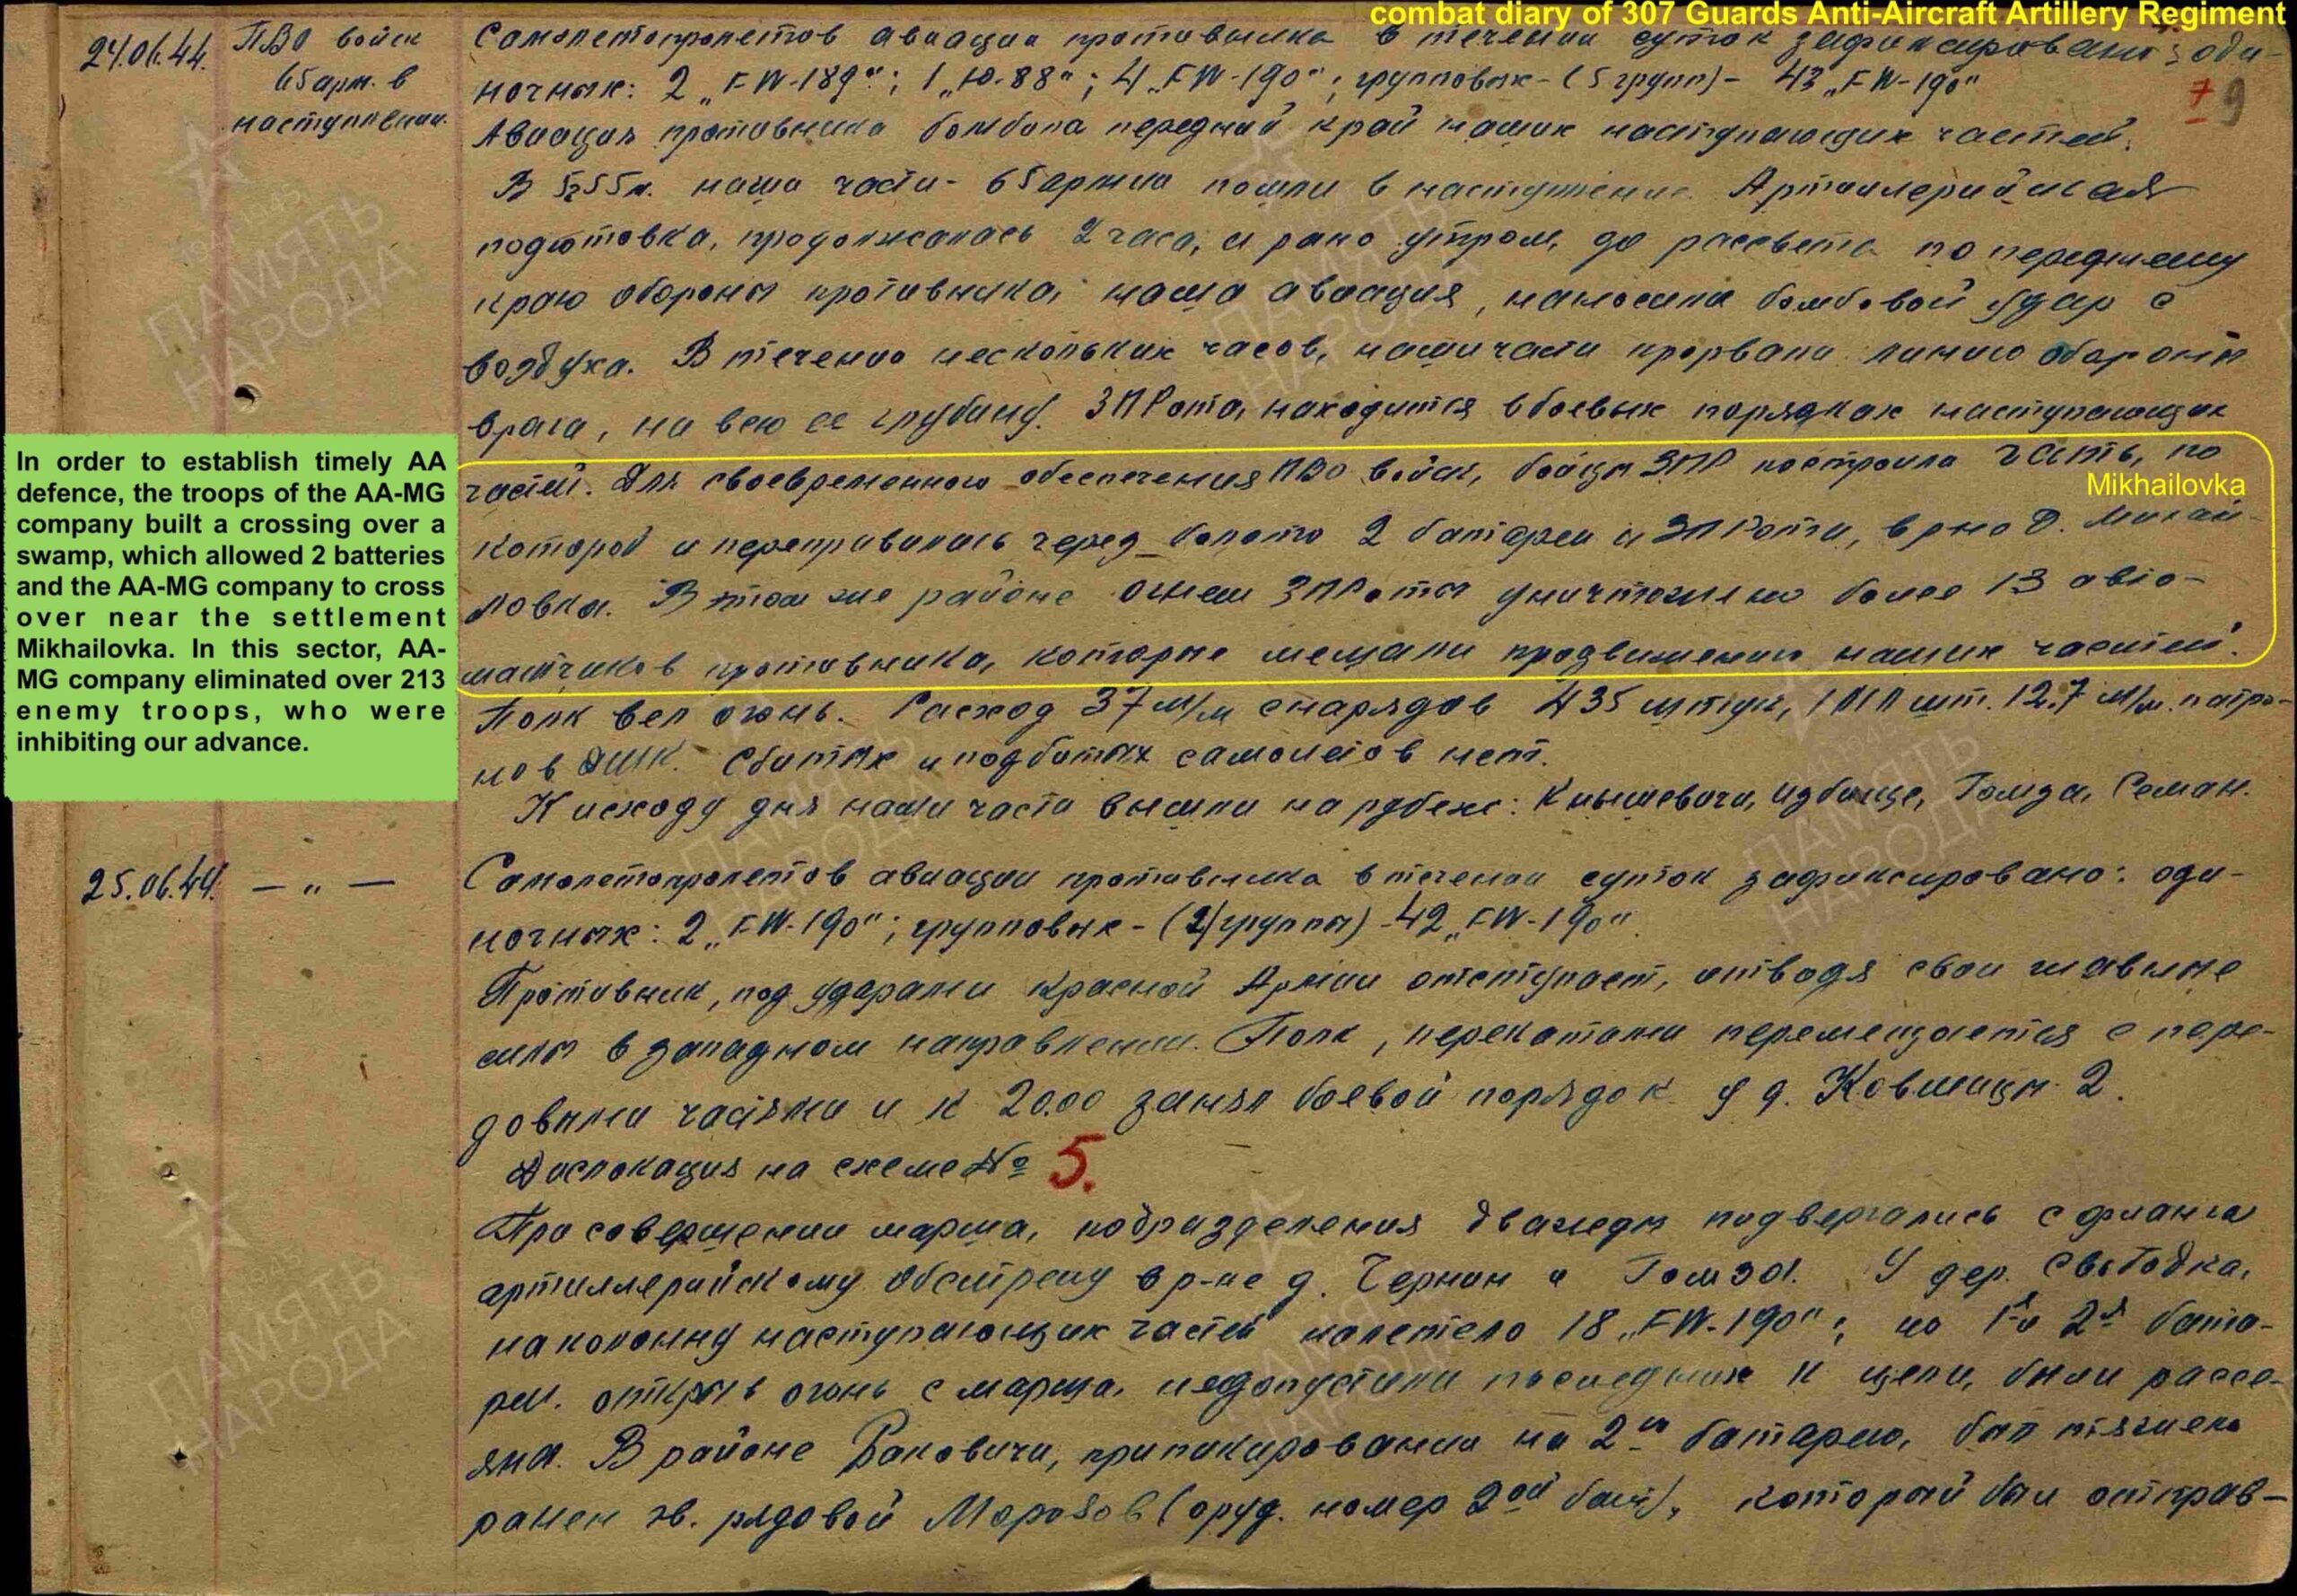 combat diary of 307 Guards Anti-Aircraft Artillery Regiment
24.06.44. ПВО войск
65 арм. в
наступлении.
Самолетопролетов авиации противника в течении суток зафиксировано: оди-
ночных: 2 „FW-189“; 1 „Ю-88“; 4 „FW-190“; групповых - (5 групп) - 43 „FW-190“
79
Авиация противника бомбила передний край наших наступающих частей.
В 5255м. наши части - 65 армии пошли в наступление. Артиллерийская
подготовка, продолжалась 2 часа, и рано утром, до рассвета по переднему
краю обороны противника, наша авиация, наносила бомбовой удар с
воздуха. В течению нескольких часов, наши части прорвали линию обороны
врага, на всю ее глубину. ЗПРота, находится в боевых порядках наступающих
частей. Для своевременного обеспечения ПВО войск, бойцы ЗПР построила гать, по
Mikhailovka
которой и переправились через болото 2 батареи и ЗПРота, в рно д. Михай-
ловка. В том же районе огнем ЗПРоты уничтожено более 13 авто-
матчиков противника, которые мешали продвижению наших частей.
In order to establish timely AA
defence, the troops of the AA-MG
company built a crossing over a
swamp, which allowed 2 batteries
and the AA-MG company to cross
over near the settlement
Mikhailovka. In this sector, AA-
MG company eliminated over 213
enemy troops, who were
inhibiting our advance.
Полк вел огонь. Расход 37 м/м снарядов 435 штук, шт. 12,7 м/м. патро-
нов ДШК. Сбитых и подбитых самолетов нет.
К исходу дня наши части вышли на рубеж: Кнышевичи, Избище, Гомза, Секан.
25.06.44. — „ —
Самолетопролетов авиации противника в течении суток зафиксировано: оди-
ночных: 2 „FW-190“; групповых - (2 группы) - 42 „FW-190“.
Противник, под ударами Красной Армии отступает, отводя свои главные
силы в западном направлении. Полк, перекатами перемещается с пере-
довыми частями и к 20.00 занял боевой порядок у д. Ковшицы 2.
Дислокация на схеме № 5.
При совершении марша, подразделения дважды подвергались с фланга
артиллерийскому обстрелу в р-не д. Чернин и Гомза. У дер. Слободка,
на колонну наступающих частей налетело 18 „FW-190“; но 1я и 2я бата-
реи. открыв огонь с марша, недопустили последних к цели, были рассе-
яны. В районе Раковичи, при пикировании на 2ую батарею, был тяжело
ранен гв. рядовой Морозов (оруд. номер 2ой бат), который был отправ-
ПАМЯТЬ
НАРОДА
ПАМЯТЬ
НАРОДА
ПАМЯТЬ
НАРОДА
ПАМЯТЬ
НАРОДА
ПАМЯТЬ
НАРОДА